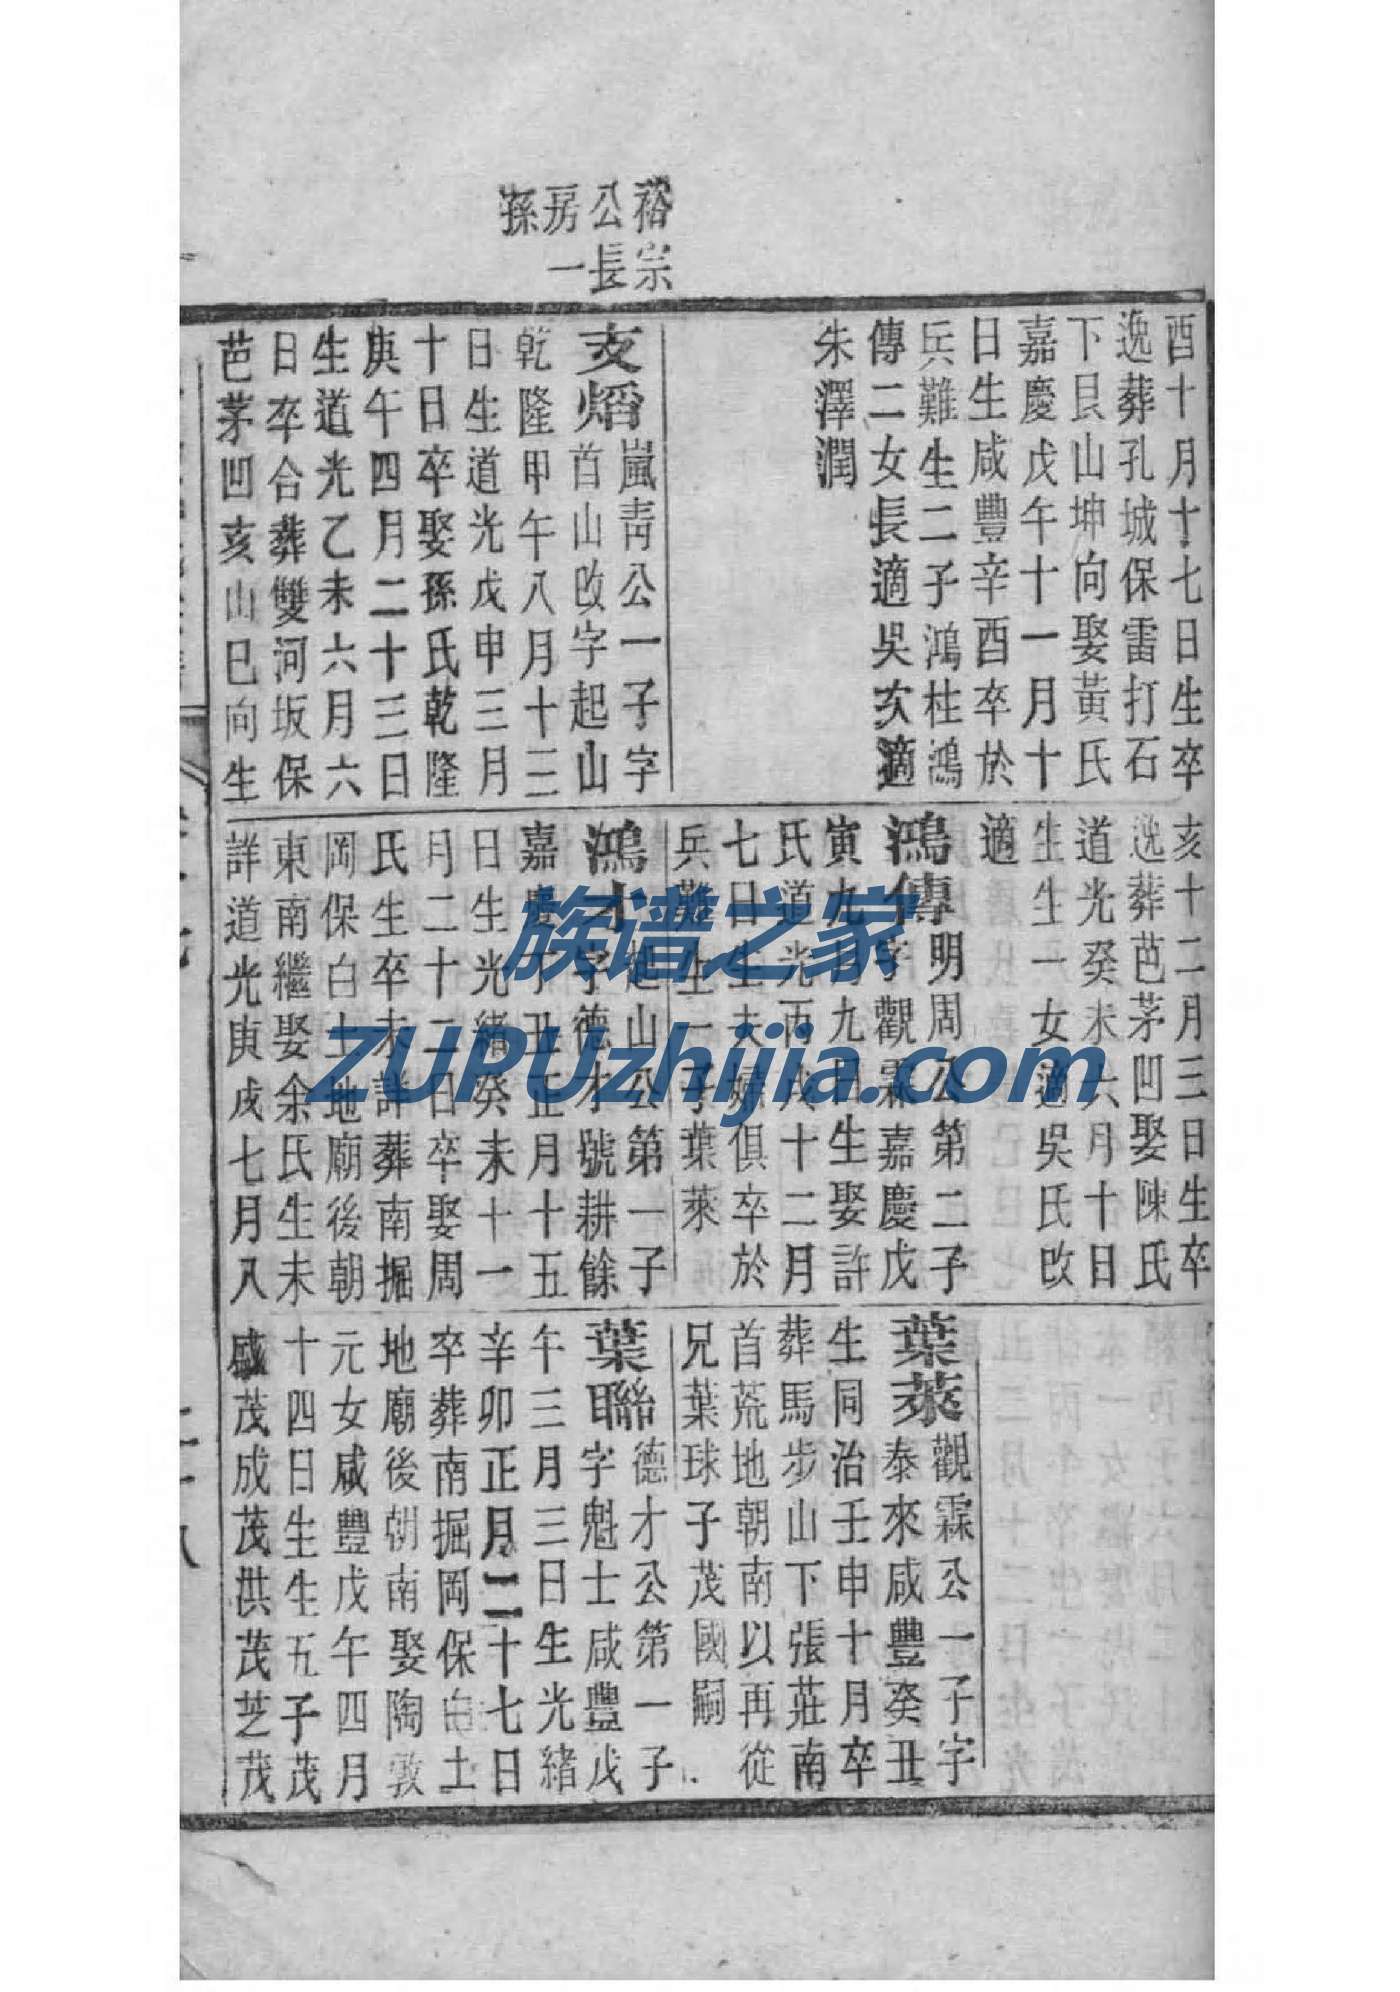 裕宗
公長
房一
孫
酉十月十七日生卒
逸葬孔城保雷打石
下艮山坤向娶黃氏
嘉慶戊午十一月十
日生咸豐辛酉卒於
兵難生二子鴻柱鴻
傳二女長適吳次適
朱澤潤
嵐靑公一子字
首山改字起山
乾隆甲午八月十二
日生道光戊申三月
十日卒娶孫氏乾隆
庚午四月二十三日
生道光乙未六月六
日卒合葬雙河坂保
芭茅凹亥山巳向生
亥十二月三日生卒
逸葬芭茅凹娶陳氏
道光癸未六月十日
生生一女適吳氏改
適
鴻傳
明周公第二子
字觀霖嘉慶戊
寅九月九日生娶許
氏道光丙戌十二月
七日生夫婦俱卒於
兵難生一子葉萊
鴻才
起山公第一子
字德才號耕餘
嘉慶丁丑正月十五
日生光緒癸未十一
月二十二日卒娶周
氏生卒未詳葬南掘
岡保白土地廟後朝
東南繼娶余氏生未
詳道光庚戌七月入
葉萊
觀霖公一子字
泰來咸豐癸丑
生同治壬申十月卒
葬馬步山下張莊南
首荒地朝南以再從
兄葉球子茂國嗣
葉聯
德才公第一子
字魁士咸豐戊
午三月三日生光緒
辛卯正月二十七日
卒葬南掘岡保白土
地廟後朝南娶陶敦
元女咸豐戊午四月
十四日生生五子茂
盛茂成茂洪茂芝茂
族谱之家
ZUPUzhijia.com